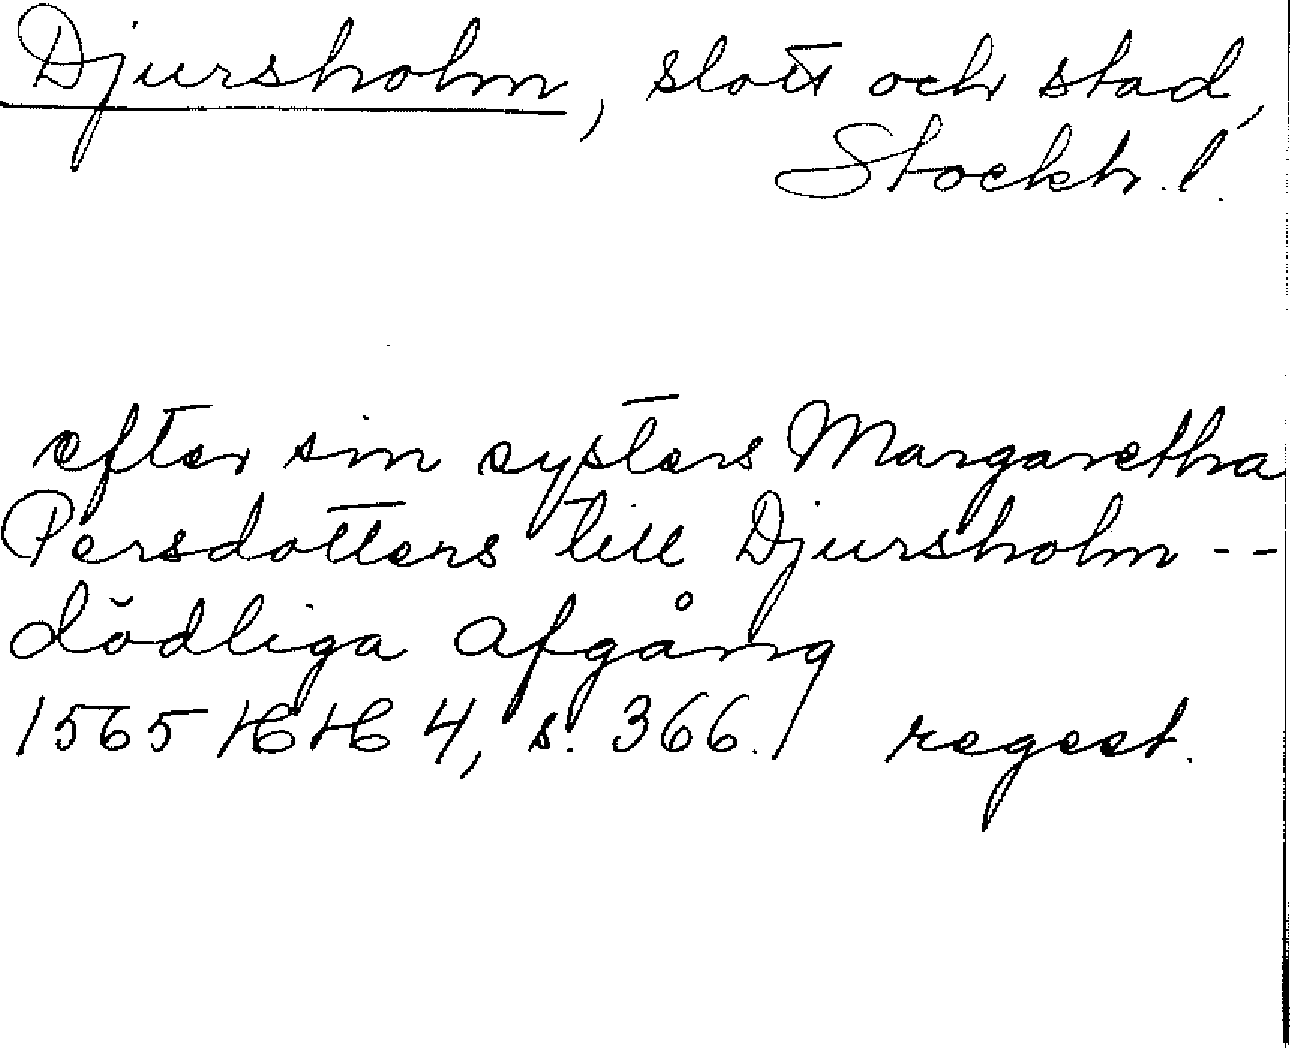 Djursholm, slott och stad,
Stockh. l.
efter sin systers Margaretha
Persdotters till Djursholm --
dödliga afgång
1565 HH 4, s. 366. / regest.